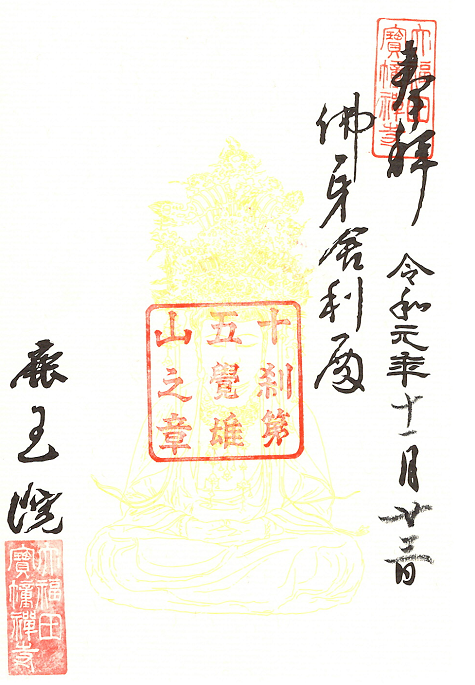 大福田
寶幢禪寺
奉拝
令和元年十一月廿三日
佛牙舎利殿
十刹第
五覺雄
山之章
鹿王院
大福田
寶幢禪寺